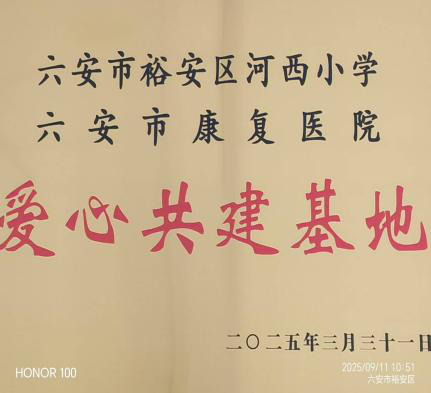 六安市裕安区河西小学
六安市康复医院
爱心共建基地
二〇二五年三月三十一日
HONOR 100
2025/09/11 10:51
六安市裕安区